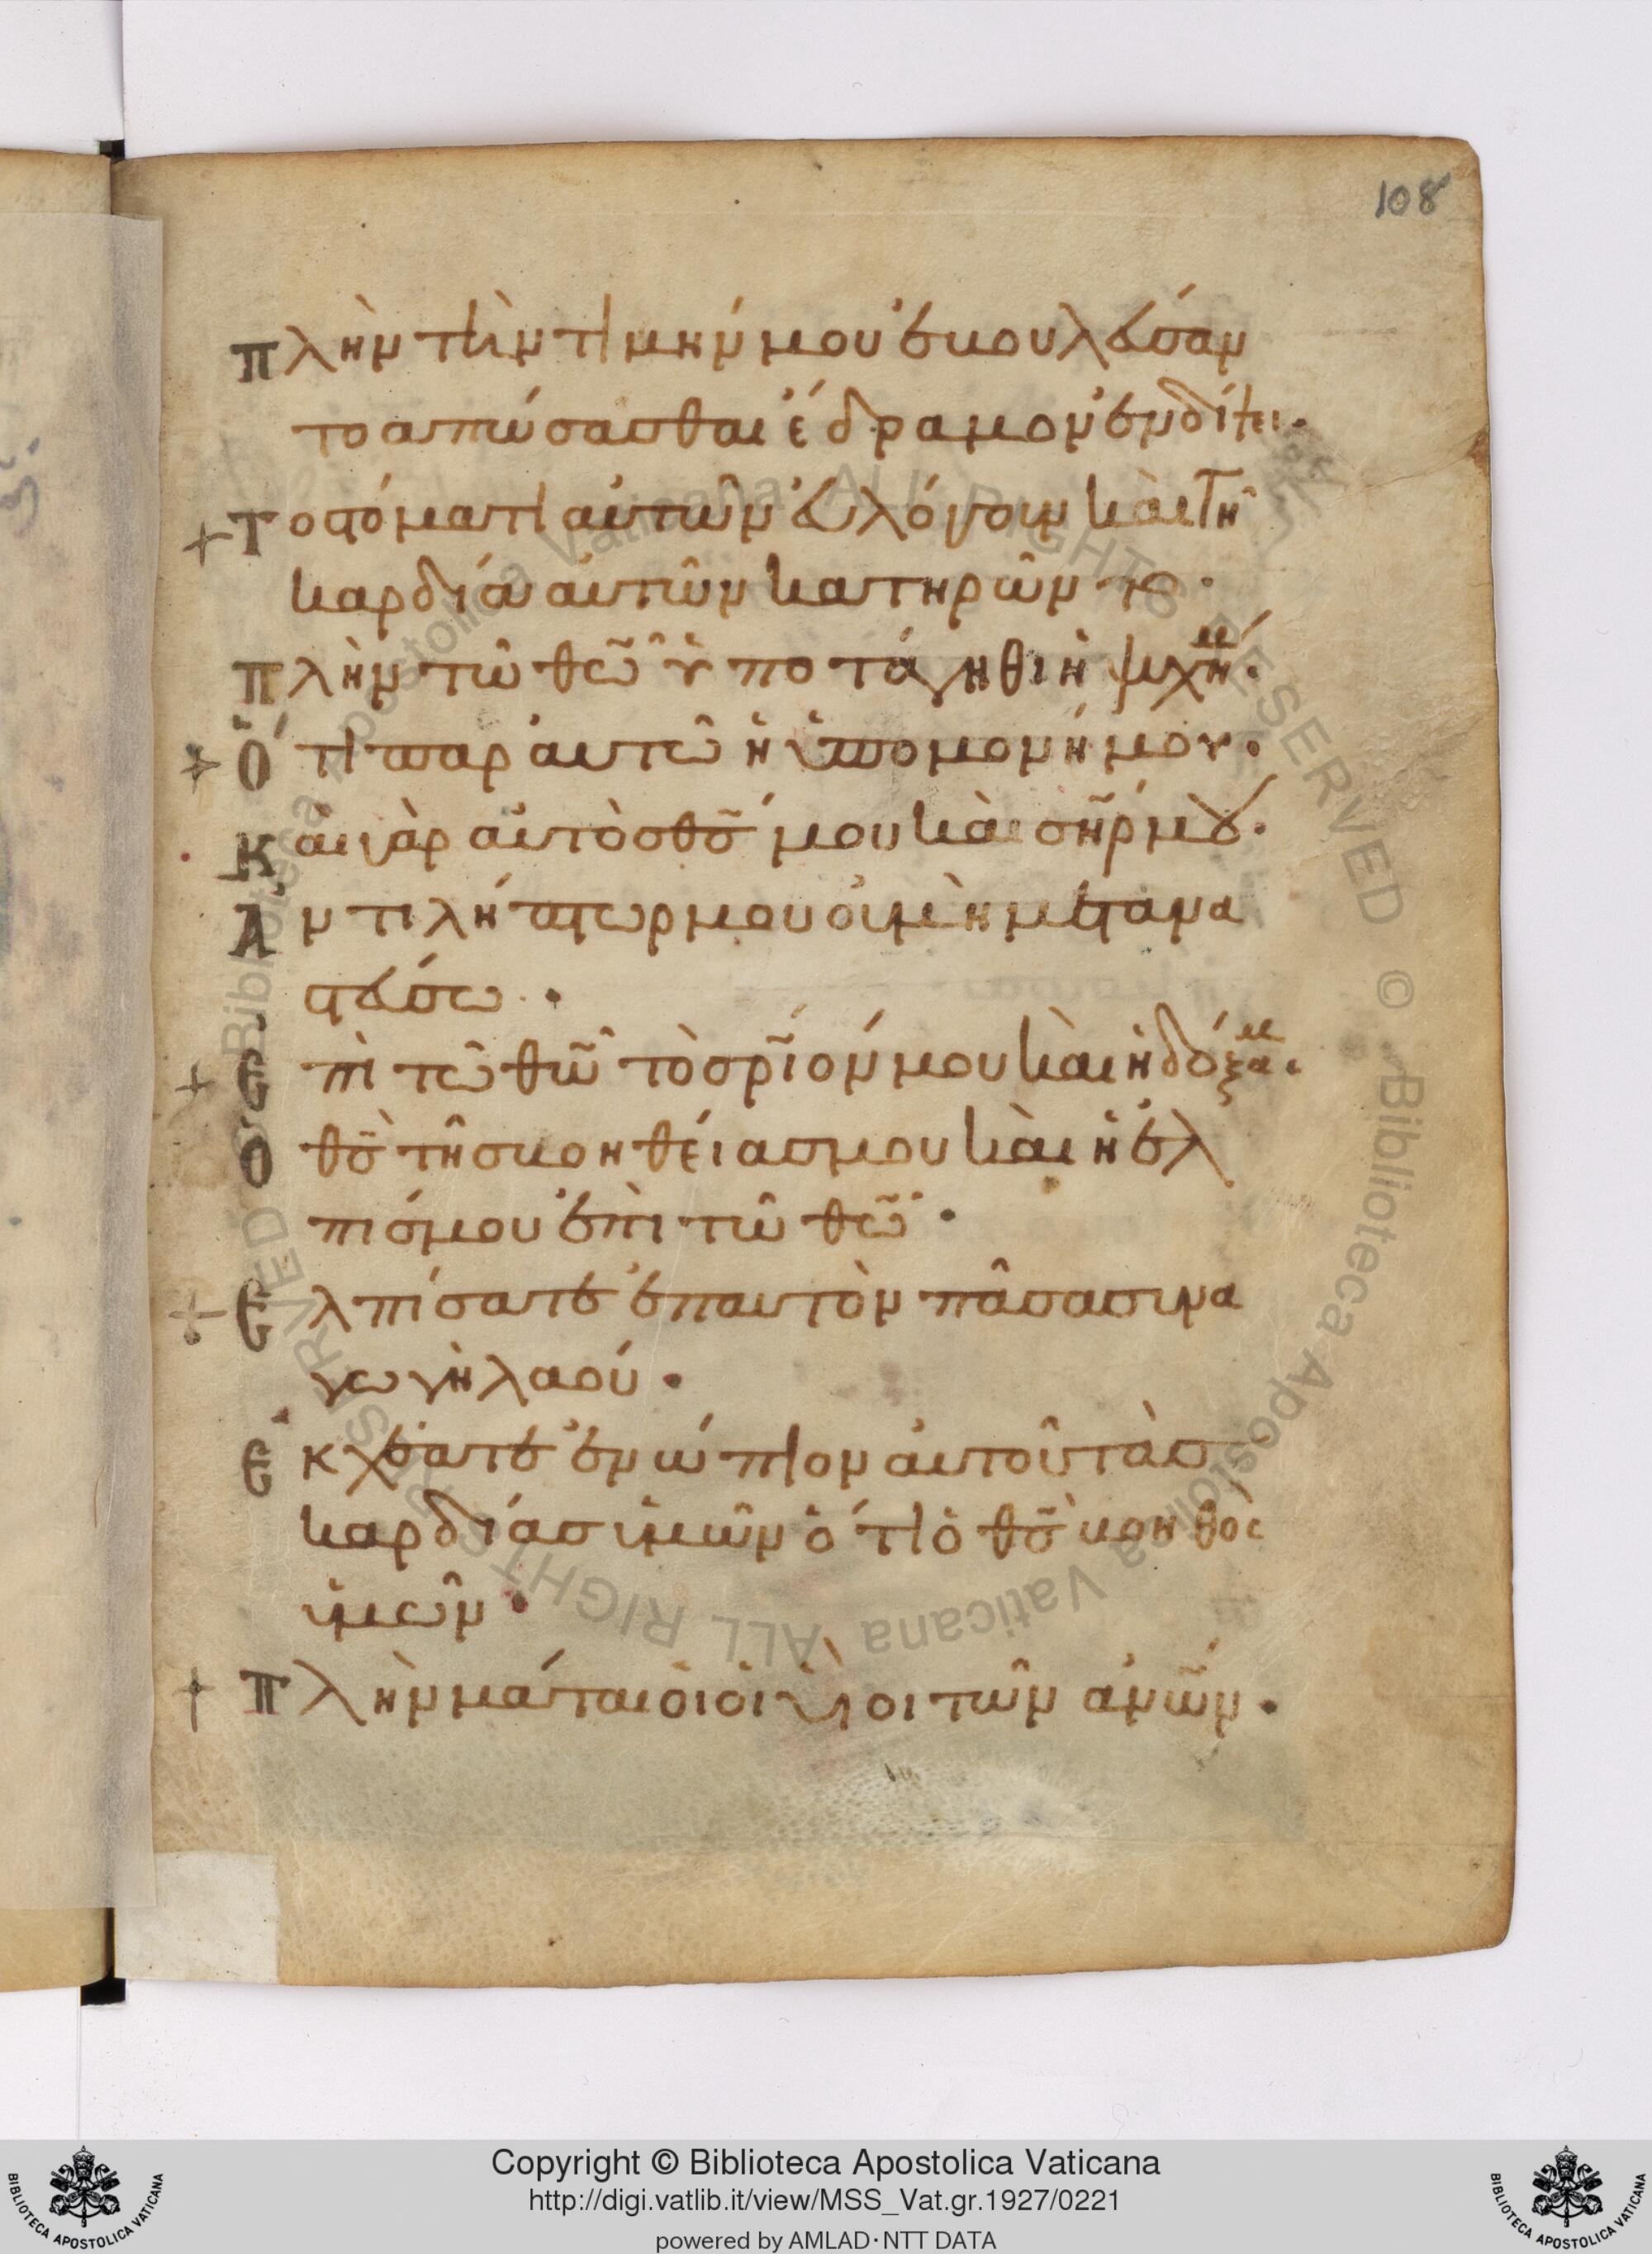 108
Πλὴν τὴν τιμήν μου ἐβουλεύσαν
το ἀπώσασθαι ἔδραμον ἐν δίψει·
Τῶ στόματι αὐτῶν εὐλόγουν καὶ τῆ
καρδία αὐτῶν κατηρῶντο·
Πλὴν τῶ θῶ ὑποτάγηθι ἡ ψυχή μ·
Ὅτι παρ αὐτῶ ἡ ὑπομονή μου·
Καὶ γὰρ αὐτὸς θς μου καὶ σηρ μου·
Ἀντιλήπτωρ μου οὐ μὴ μετανα
στεύσω·
Ἐπὶ τῶ θῶ τὸ σριόν μου καὶ ἡ δόξα μ·
Ὁ θς τῆς βοηθείας μου καὶ ἡ ἐλ
πίς μου ἐπὶ τῶ θῶ·
Ἐλπίσατε ἐπ αὐτὸν πᾶσα συνα
γωγὴ λαοῦ·
Ἐκχέατε ἐνώπιον αὐτοῦ τὰς
καρδίας ὑμῶν ὅτι ὁ θς βοηθὸς
ὑμῶν·
Πλὴν μάταιοι οἱ υἱοὶ τῶν ἀνων·
Copyright © Biblioteca Apostolica Vaticana
http://digi.vatlib.it/view/MSS_Vat.gr.1927/0221
powered by AMLAD·NTT DATA
BIBLIOTECA APOSTOLICA VATICANA
BIBLIOTECA APOSTOLICA VATICANA
© Biblioteca Apostolica Vaticana ALL RIGHTS RESERVED